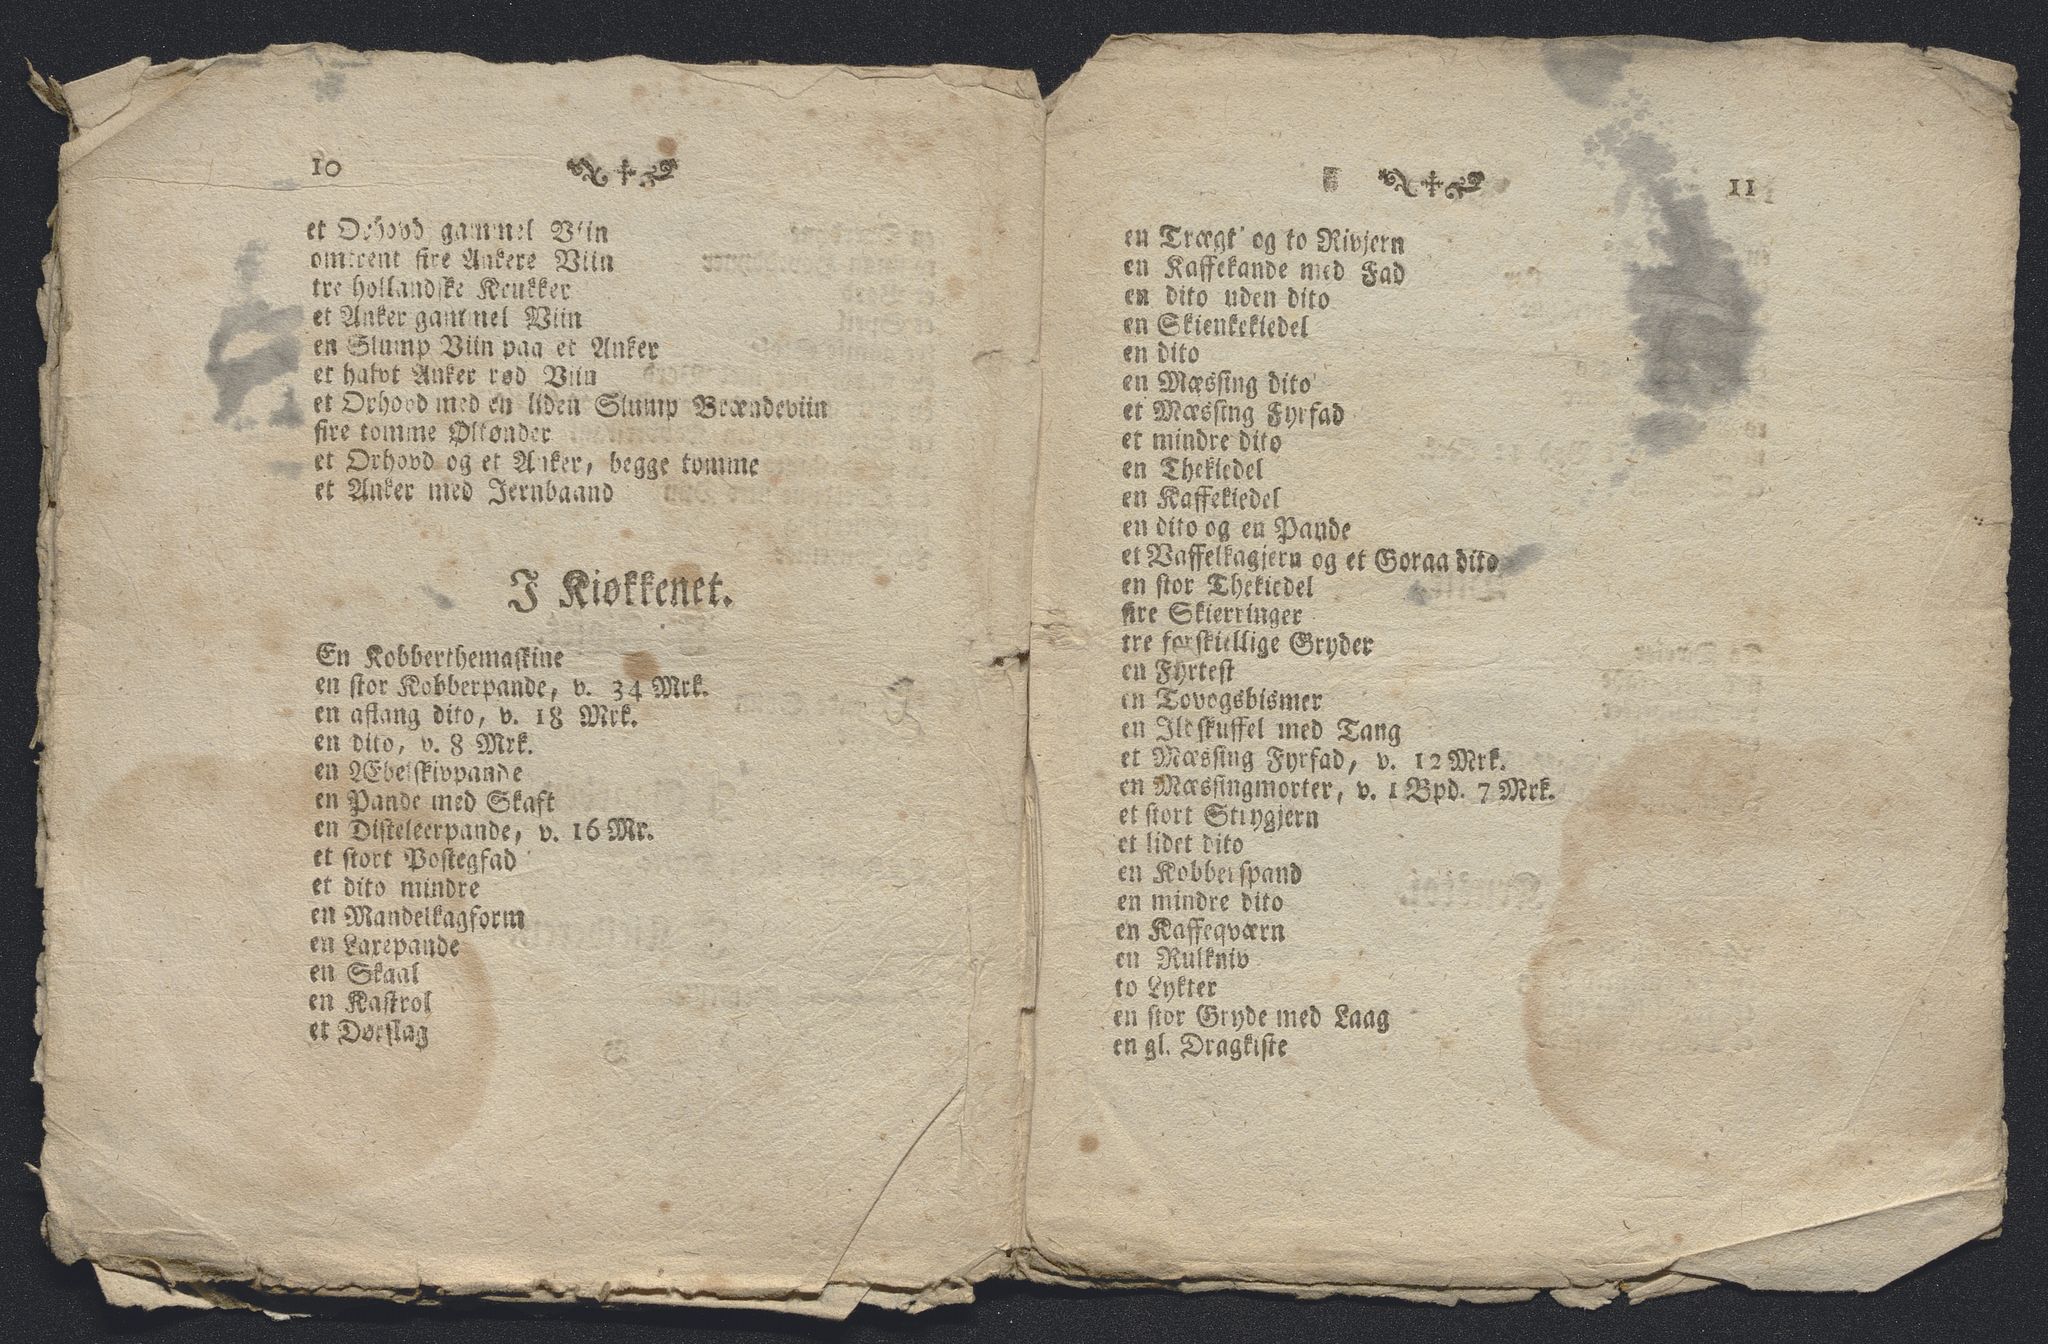 10
et Oxhovd gammel Viin
omtrent fire Ankere Viin
tre hollandske Krukker
et Anker gammel Viin
en Slump Viin paa et Anker
et halvt Anker rød Viin
et Oxhovd med en liden Slump Brændeviin
fire tomme Øltønder
et Oxhovd og et Anker, begge tomme
et Anker med Jernbaand
I Kiøkkenet.
En Kobberthemaskine
en stor Kobberpande, v. 34 Mrk.
en aflang dito, v. 18 Mrk.
en dito, v. 8 Mrk.
en Æbelskivpande
en Pande med Skaft
en Disteleerpande, v. 16 Mr.
et stort Postegfad
et dito mindre
en Mandelkagform
en Larepande
en Skaal
en Kastrol
et Dørslag
11
en Trægt og to Rivjern
en Kaffekande med Fad
en dito uden dito
en Skienkekiedel
en dito
en Mæssing dito
et Mæssing Fyrfad
et mindre dito
en Thekiedel
en Kaffekiedel
en dito og en Pande
et Vaffelkagjern og et Goraa dito
en stor Thekiedel
fire Skierringer
tre forskiellige Gryder
en Fyrtest
en Tovogsbismer
en Ildskuffel med Tang
et Mæssing Fyrfad, v. 12 Mrk.
en Mæssingmorter, v. 1 Bpd. 7 Mrk.
et stort Strygjern
et lidet dito
en Kobberspand
en mindre dito
en Kaffeqværn
en Rulkniv
to Lykter
en stor Gryde med Laag
en gl. Dragkiste